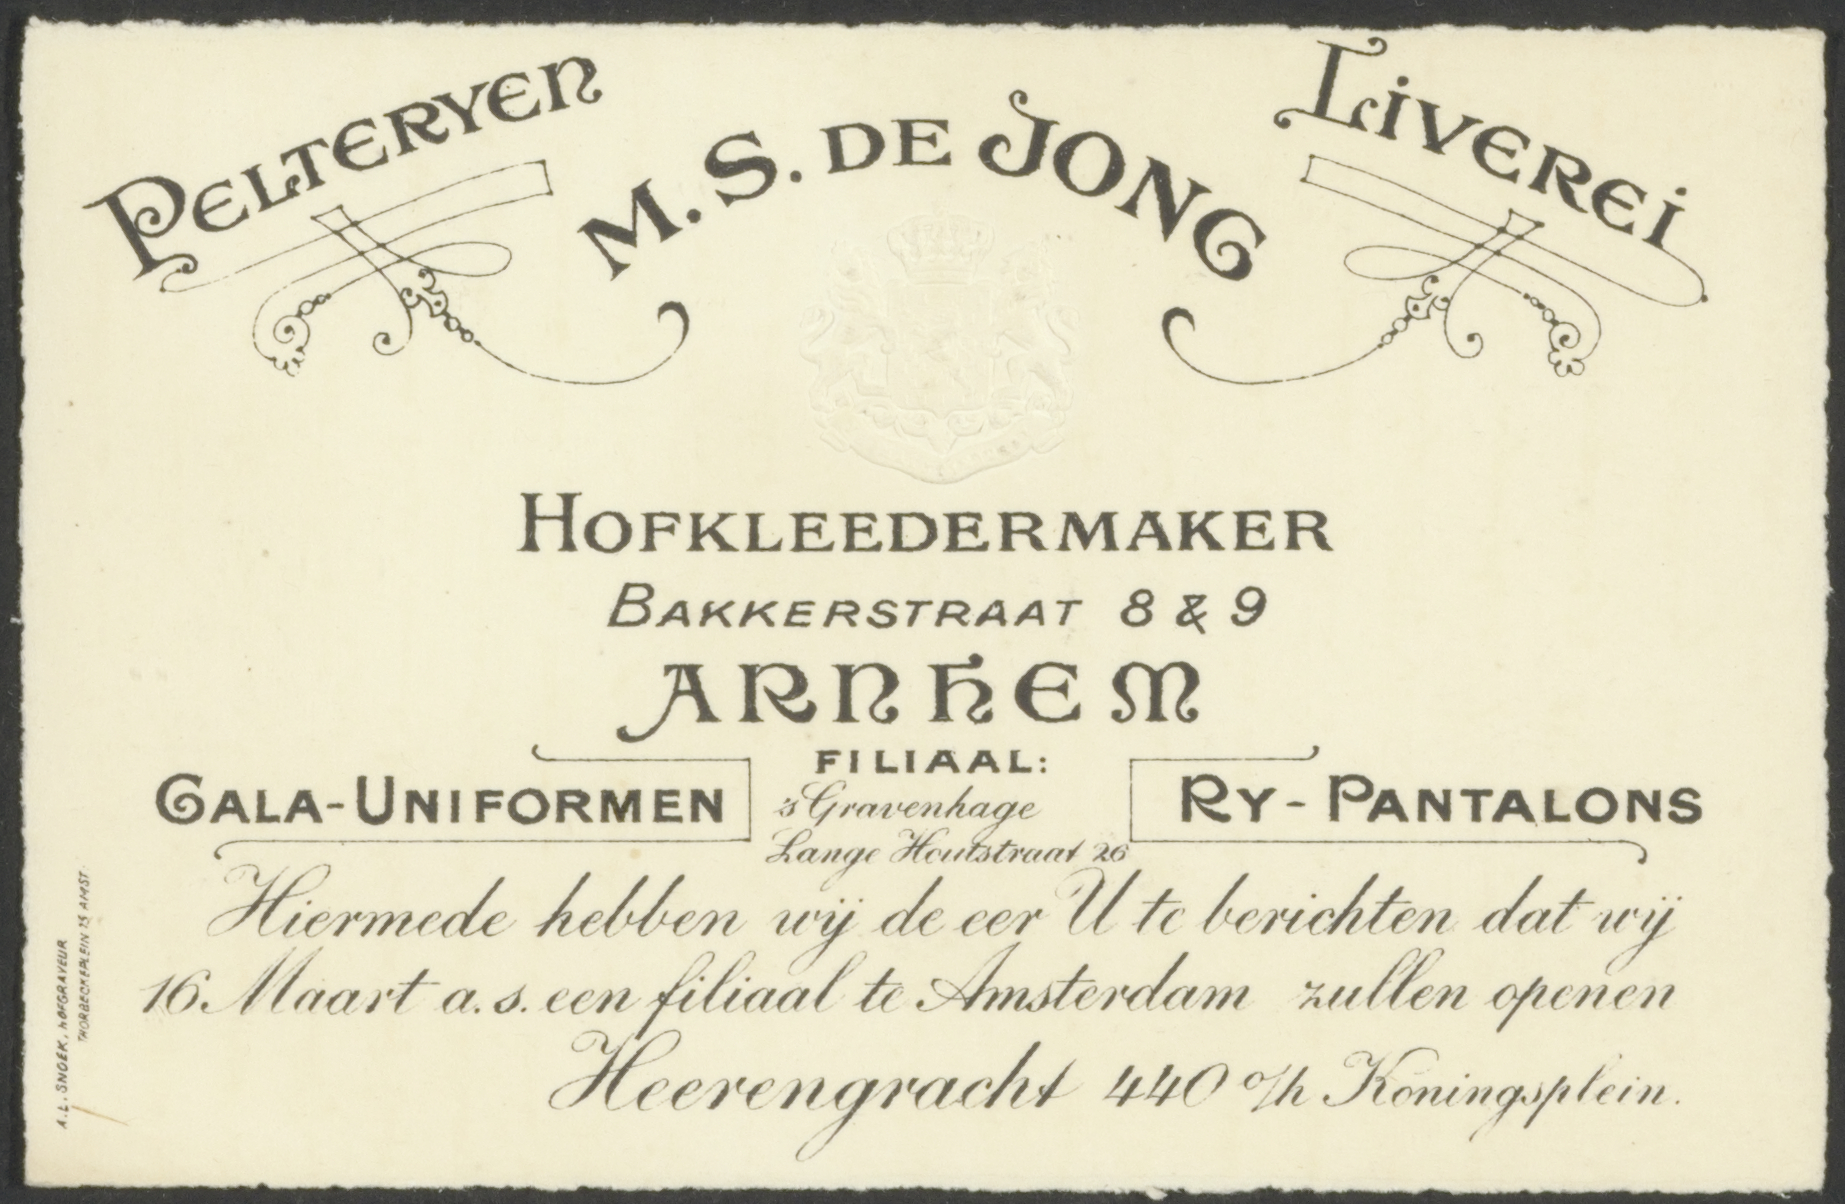 PELTERYEN
M. S. DE JONG
LIVEREI
HOFKLEEDERMAKER
BAKKERSTRAAT 8 & 9
ARNHEM
FILIAAL:
GALA-UNIFORMEN
's Gravenhage
Lange Houtstraat 26
RY-PANTALONS
Hiermede hebben wij de eer U te berichten dat wij
16 Maart a. s. een filiaal te Amsterdam zullen openen
Heerengracht 440 o/h Koningsplein.
A.L. SNOEK, HOFGRAVEUR
THORBECKEPLEIN 15 AMST.